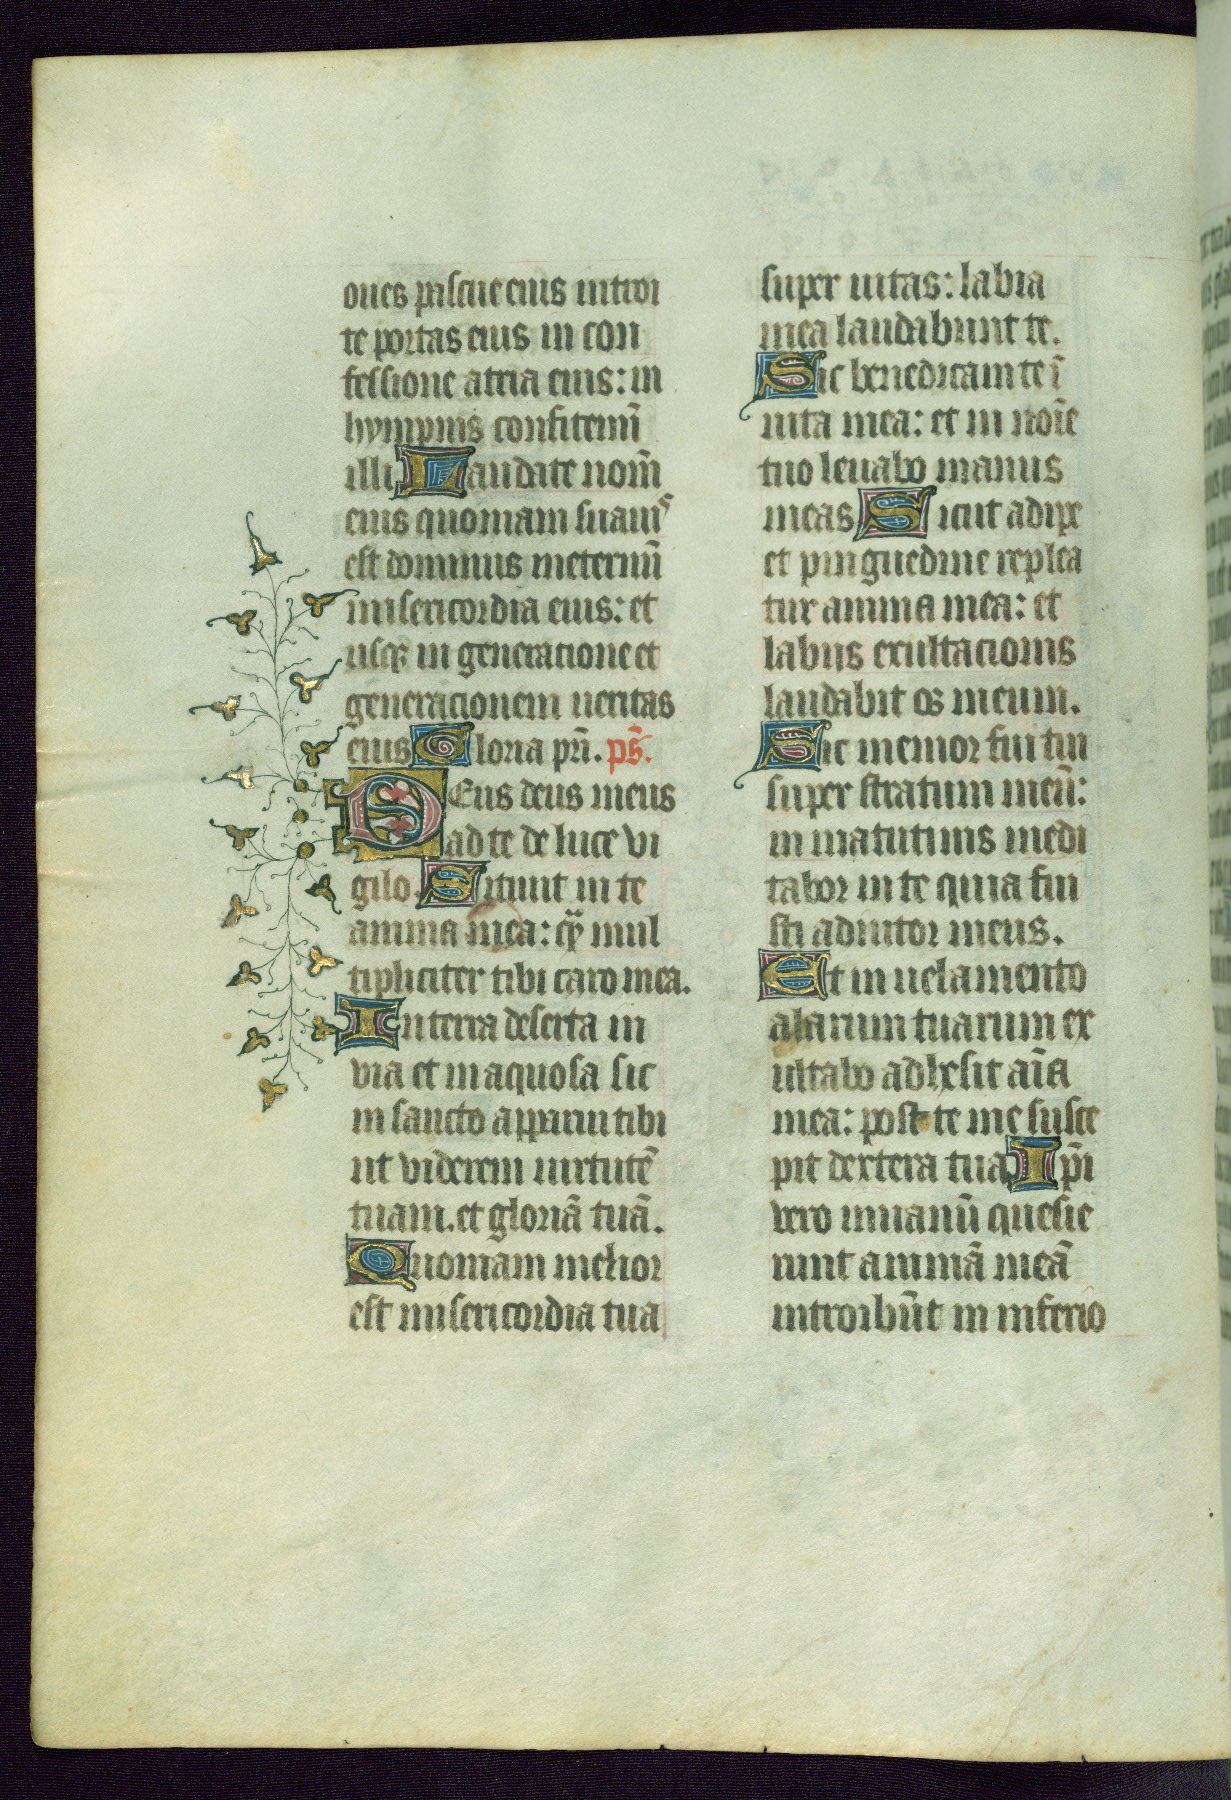 oues pascue eius introi
te portas eius in con
fessione atria eius: in
hympnis confitemĩ
illi Laudate nom̃
eius quoniam suauis
est dominus ineternũ
misericordia eius: et
usqꝫ in generatione et
generacionem ueritas
eius Gloria pr̃i. ps̃.
Deus deus meus
ad te de luce vi
gilo. Sitiuit in te
anima mea: qͣ mul
tipliciter tibi caro mea.
In terra deserta in
via et inaquosa sic
in sancto apparui tibi
ut viderem uirtutẽ
tuam. et gloriã tuã.
Quoniam melior
est misericordia tua
super uitas: labia
mea laudabunt te.
Sic benedicam te ĩ
uita mea: et in noĩe
tuo leuabo manus
meas Sicut adipe
et pinguedine replea
tur anima mea: et
labiis exultacionis
laudabit os meum.
Sic memor fui tui
super stratum meũ:
in matutinis medi
tabor in te quia fui
sti adiutor meus.
Et in uelamento
alarum tuarum ex
ultabo adhesit aĩa
mea: post te me susce
pit dextera tua Ip̃i
vero inuanũ quesie
runt animã meã
introibũt in inferio